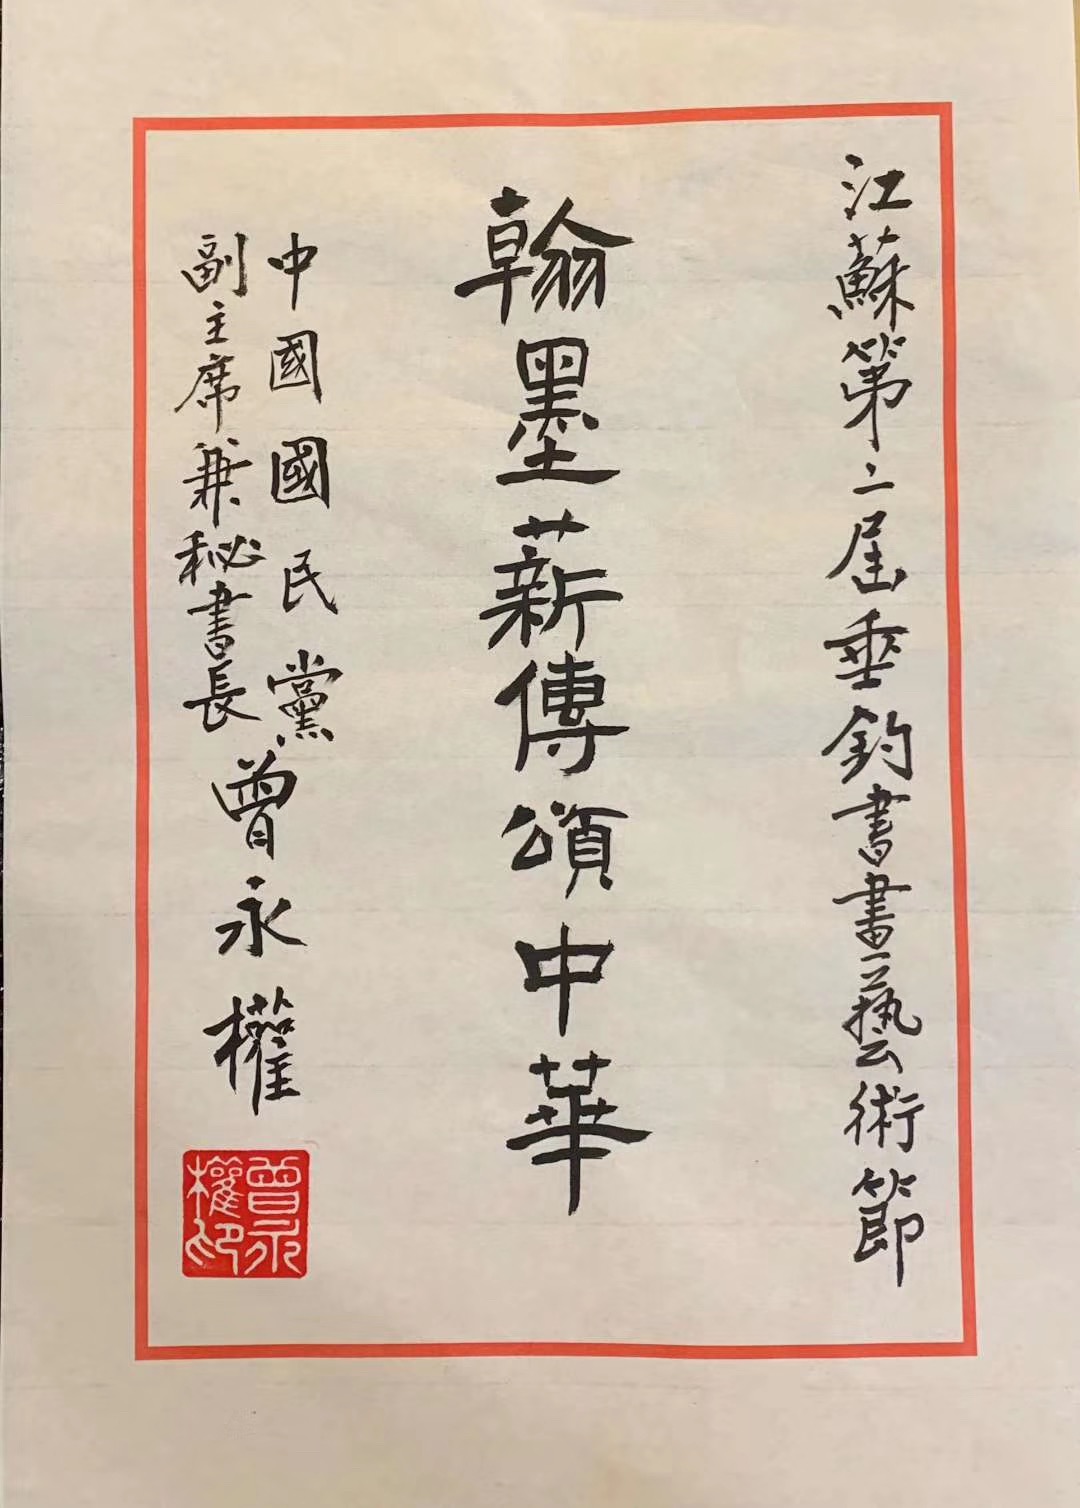 江蘇第二屆垂釣書畫藝術節
翰墨薪傳頌中華
中國國民黨
副主席兼秘書長
曾永權
曾永
權印